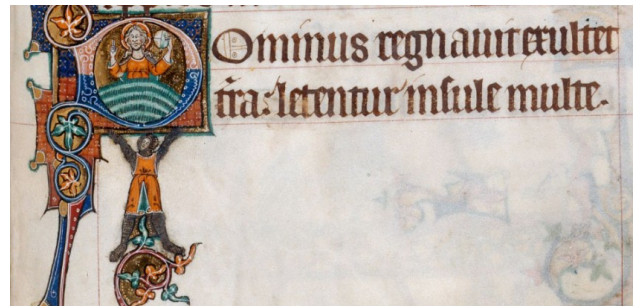 Dominus regnavit exultet
tr̄a: letentur insule multe.